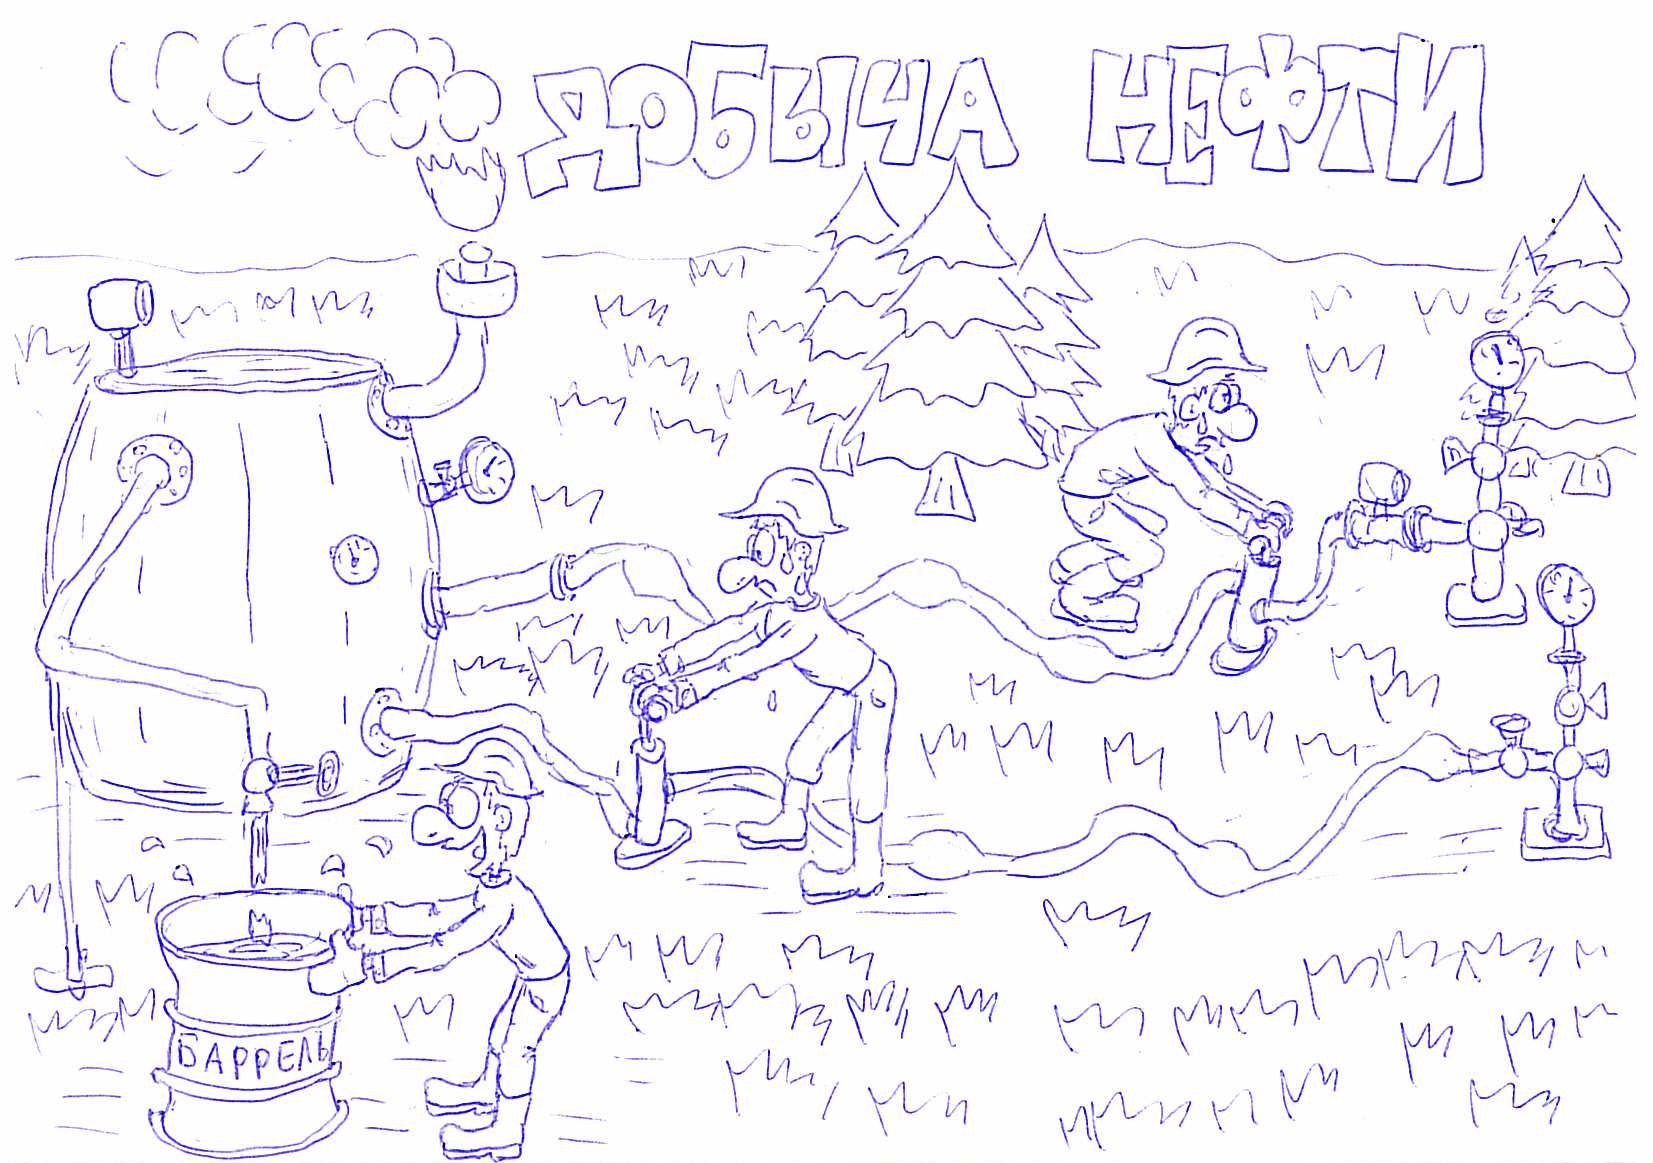 ДОБЫЧА НЕФТИ
БАРРЕЛЬ